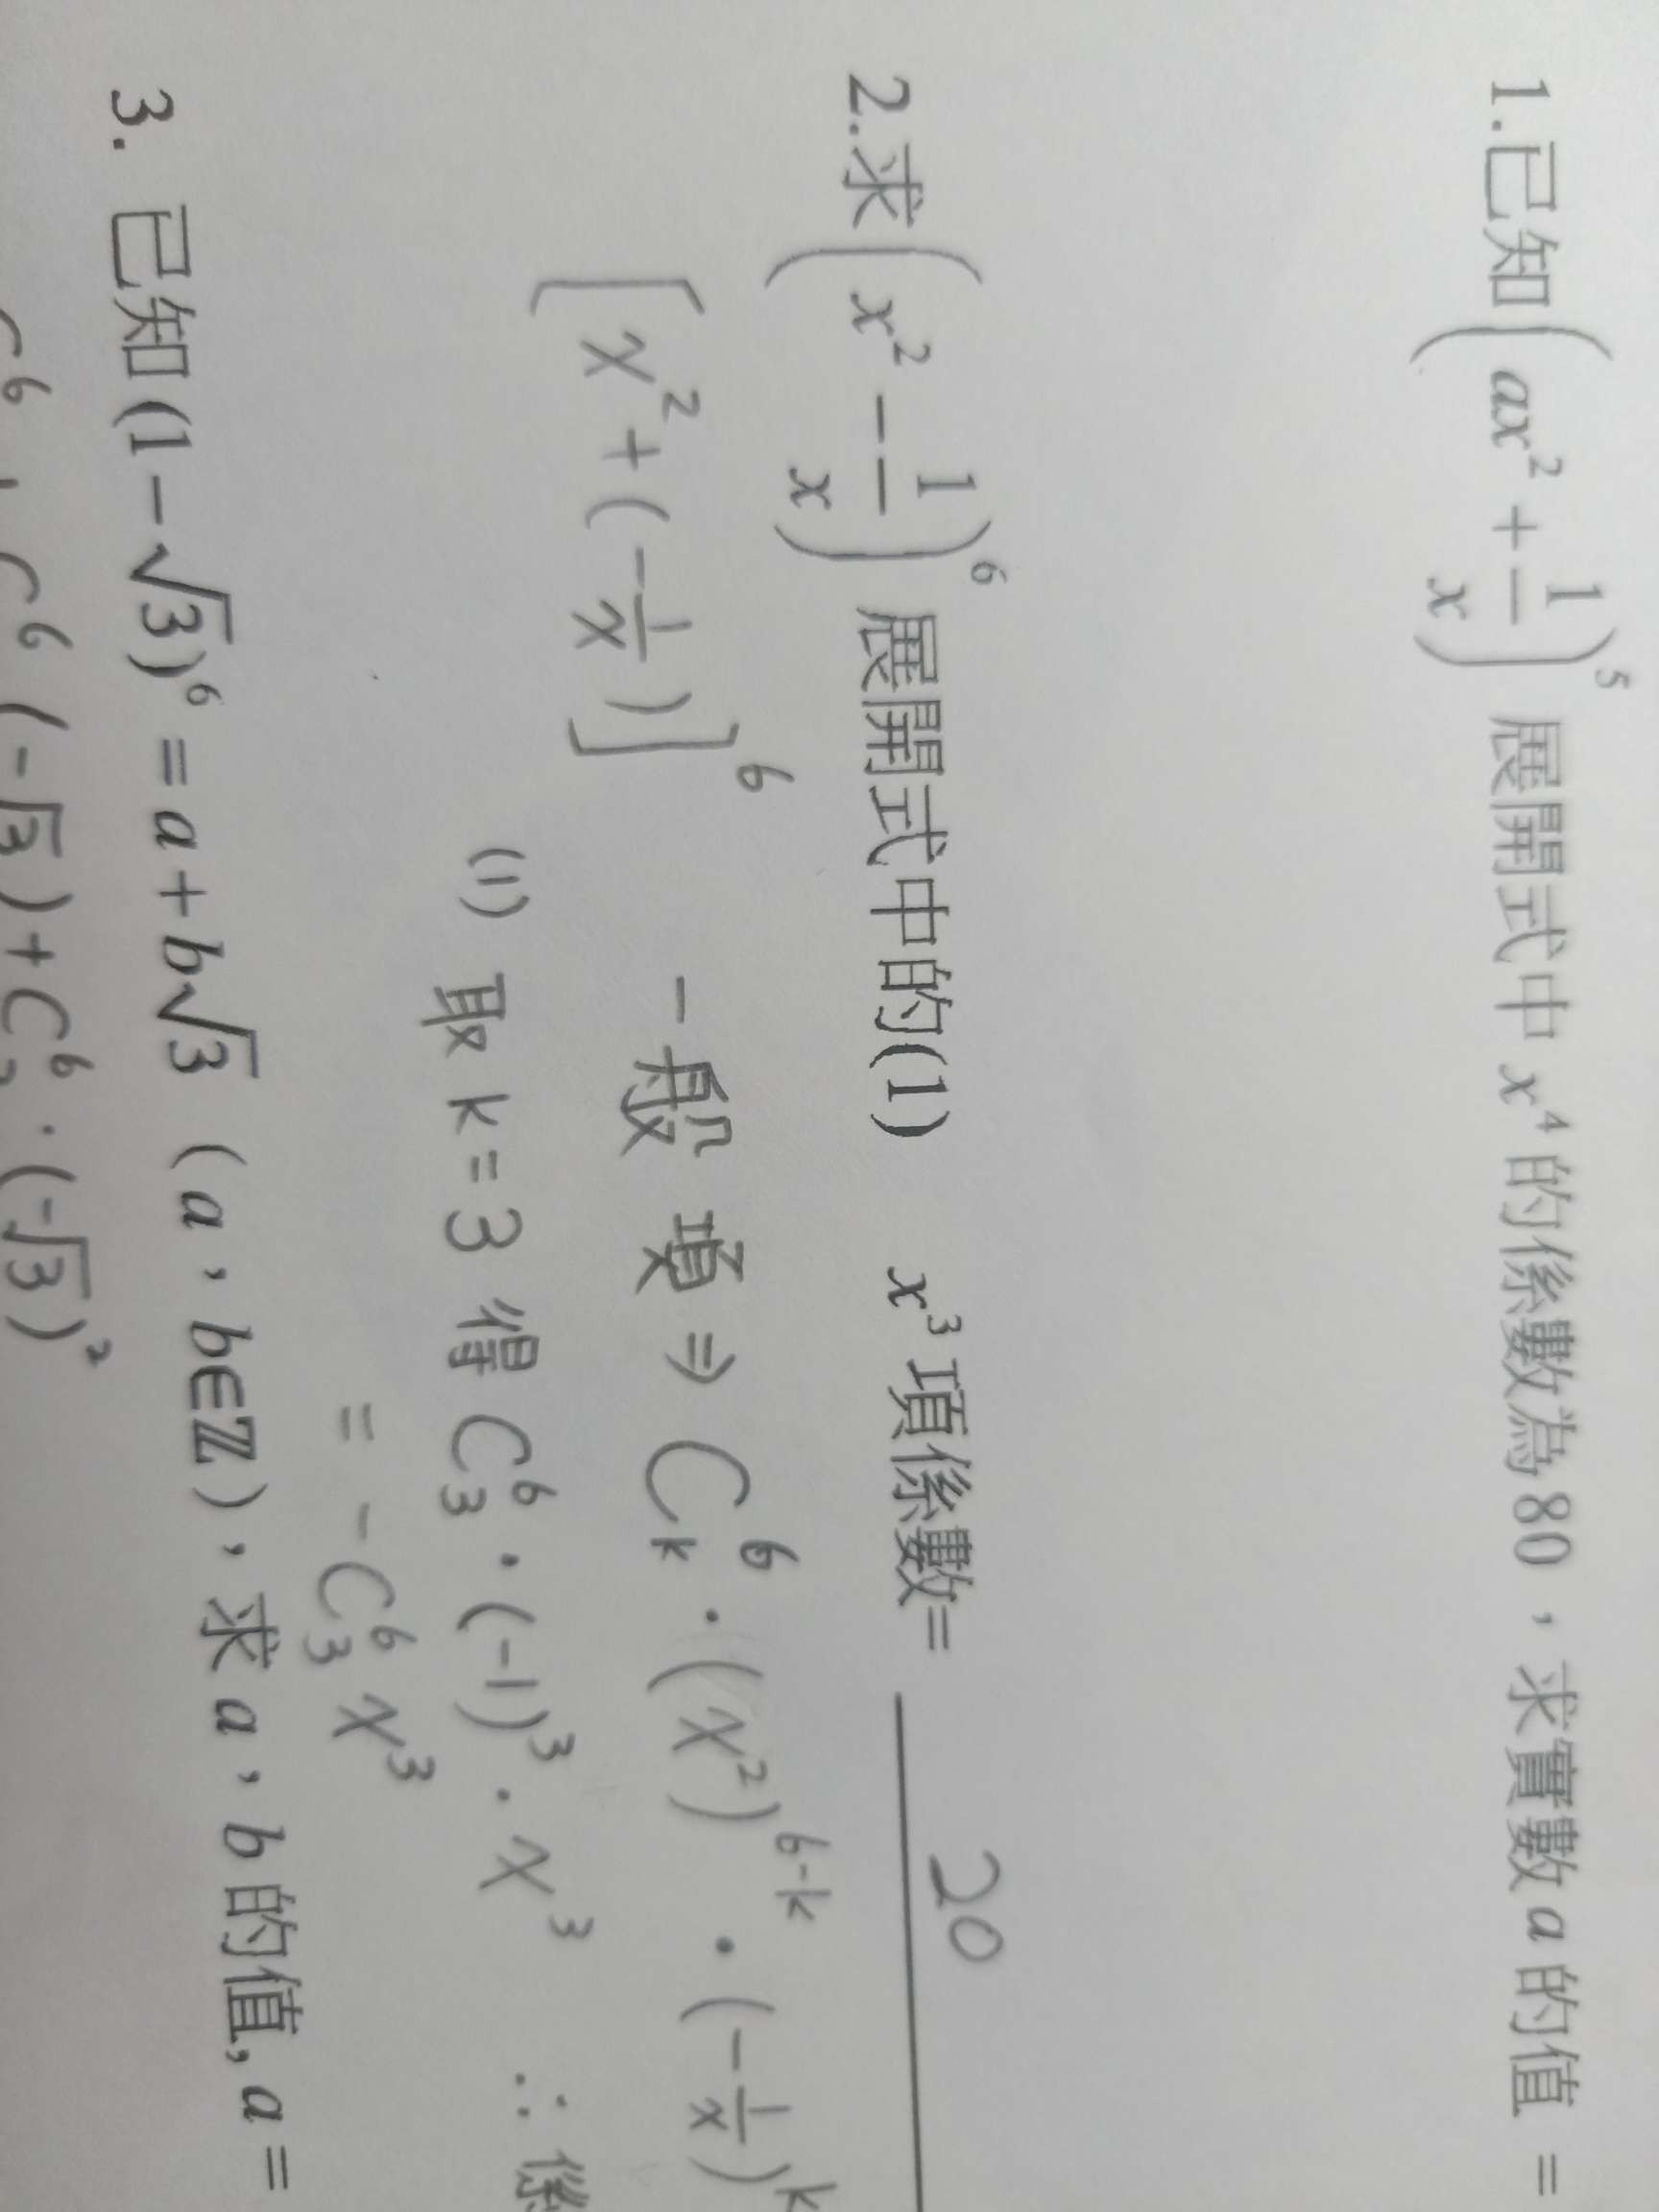 1.已知(ax² + 1/x)⁵ 展開式中 x⁴ 的係數為80，求實數a的值 =
2.求(x² - 1/x)⁶ 展開式中的(1) x³項係數= 20
[x² + (-1/x)]⁶ 一般項 ⇒ C⁶ₖ · (x²)⁶⁻ᵏ · (-1/x)ᵏ
(1) 取 k = 3 得 C⁶₃ · (-1)³ · x³ ∴ 係
= - C⁶₃ x³
3. 已知(1-√3)⁶ = a + b√3 (a，b∈ℤ)，求a，b的值, a =
C⁶ + C⁶ (-√3) + C⁶₂ · (-√3)²